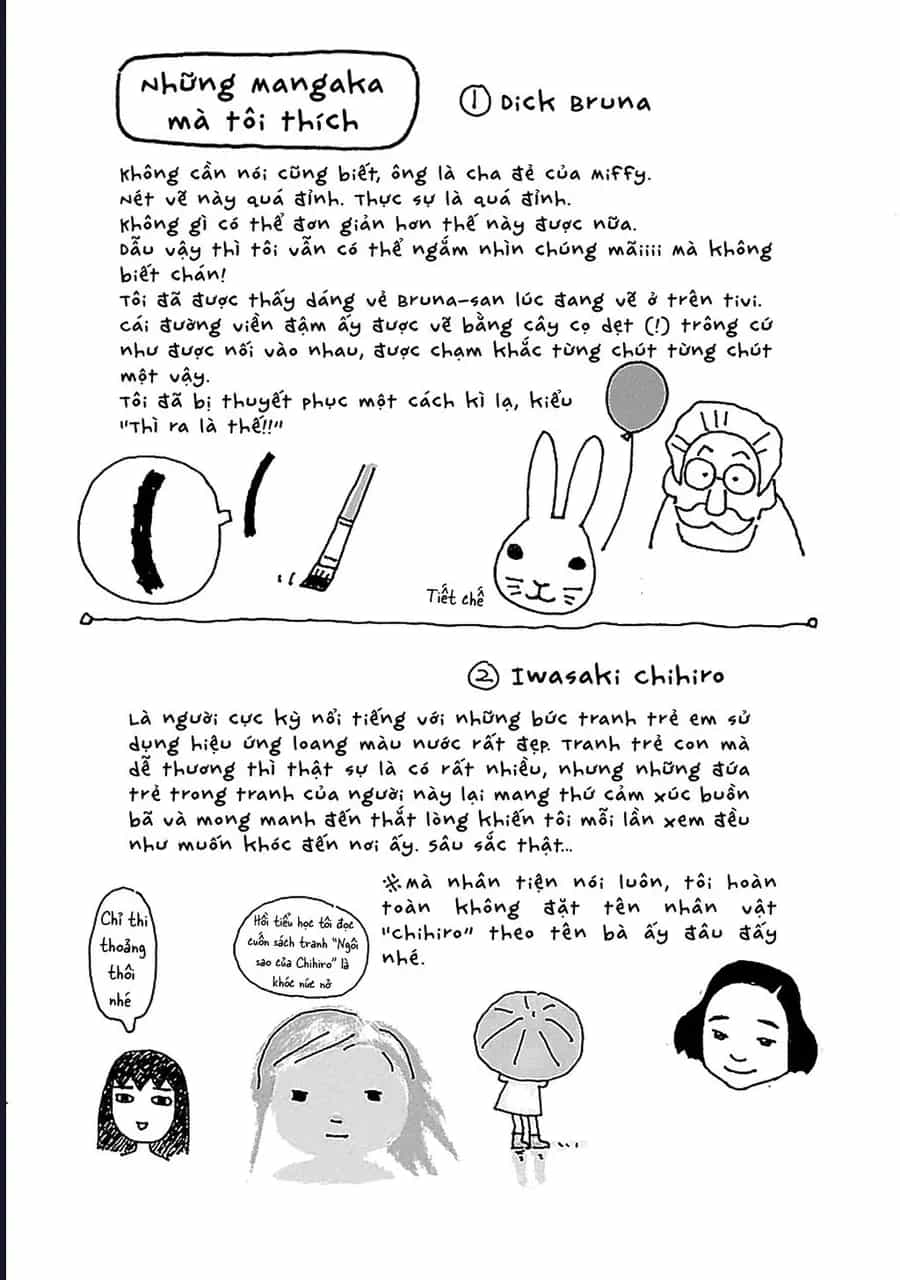 Những Mangaka
mà tôi thích
① Dick Bruna
Không cần nói cũng biết, ông là cha đẻ của Miffy.
Nét vẽ này quá đỉnh. Thực sự là quá đỉnh.
Không gì có thể đơn giản hơn thế này được nữa.
Dẫu vậy thì tôi vẫn có thể ngắm nhìn chúng mãiiii mà không
biết chán!
Tôi đã được thấy dáng vẻ Bruna-san lúc đang vẽ ở trên tivi.
Cái đường viền đậm ấy được vẽ bằng cây cọ dẹt (!) trông cứ
như được nối vào nhau, được chạm khắc từng chút từng chút
một vậy.
Tôi đã bị thuyết phục một cách kì lạ, kiểu
"Thì ra là thế!!"
Tiết chế
② Iwasaki Chihiro
Là người cực kỳ nổi tiếng với những bức tranh trẻ em sử
dụng hiệu ứng loang màu nước rất đẹp. Tranh trẻ con mà
dễ thương thì thật sự là có rất nhiều, nhưng những đứa
trẻ trong tranh của người này lại mang thứ cảm xúc buồn
bã và mong manh đến thắt lòng khiến tôi mỗi lần xem đều
như muốn khóc đến nơi ấy. Sâu sắc thật...
※Mà nhân tiện nói luôn, tôi hoàn
toàn không đặt tên nhân vật
"Chihiro" theo tên bà ấy đâu đấy
nhé.
Chỉ thi
thoảng
thôi
nhé
Hồi tiểu học tôi đọc
cuốn sách tranh "Ngôi
sao của Chihiro" là
khóc nức nở